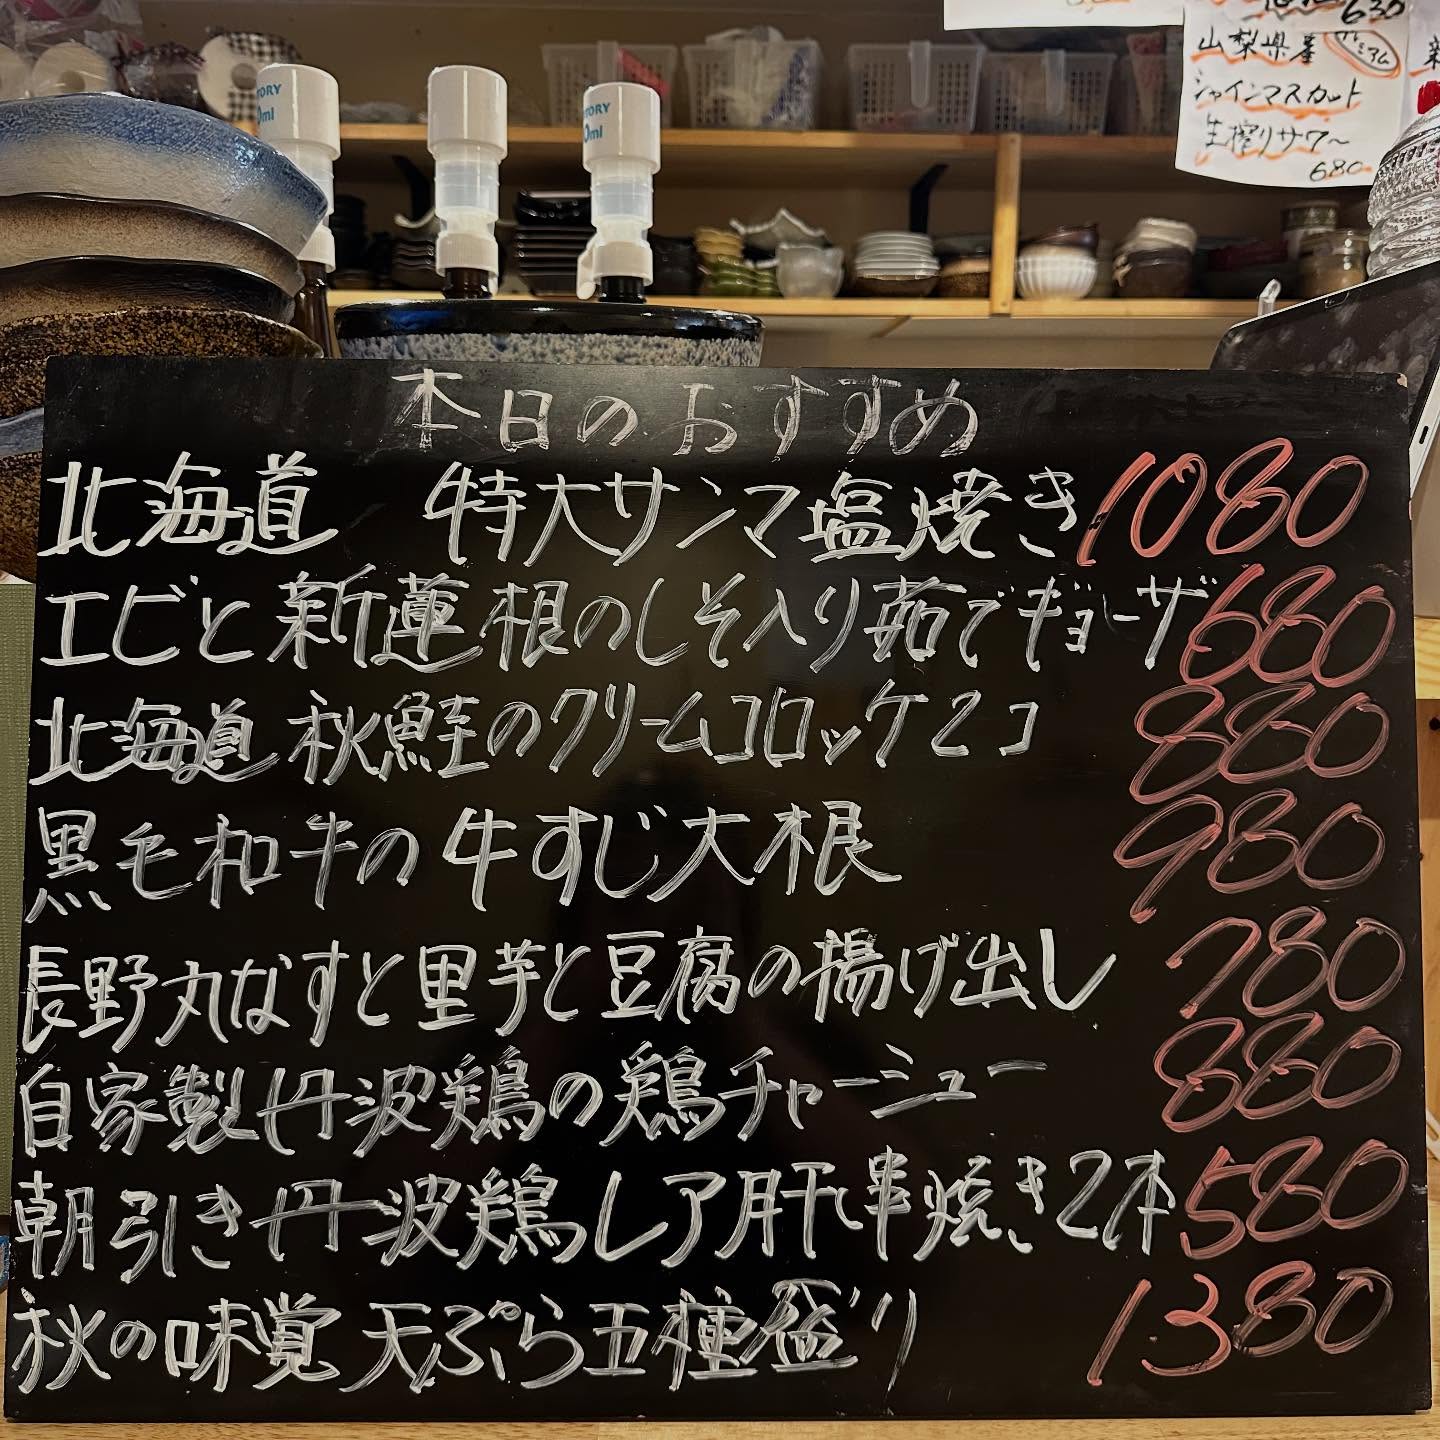 TORY
0ml
TORY
0ml
630
山梨県産 プレミアム
シャインマスカット
生搾りサワー
680
本日のおすすめ
北海道 特大サンマ塩焼き 1080
エビと新蓮根のしそ入り茹でギョーザ 680
北海道秋鮭のクリームコロッケ2コ 880
黒毛和牛の牛すじ大根 980
長野丸なすと里芋と豆腐の揚げ出し 780
自家製丹波鶏の鶏チャーシュー 880
朝引き丹波鶏レア肝串焼き2本 580
秋の味覚天ぷら五種盛り 1380